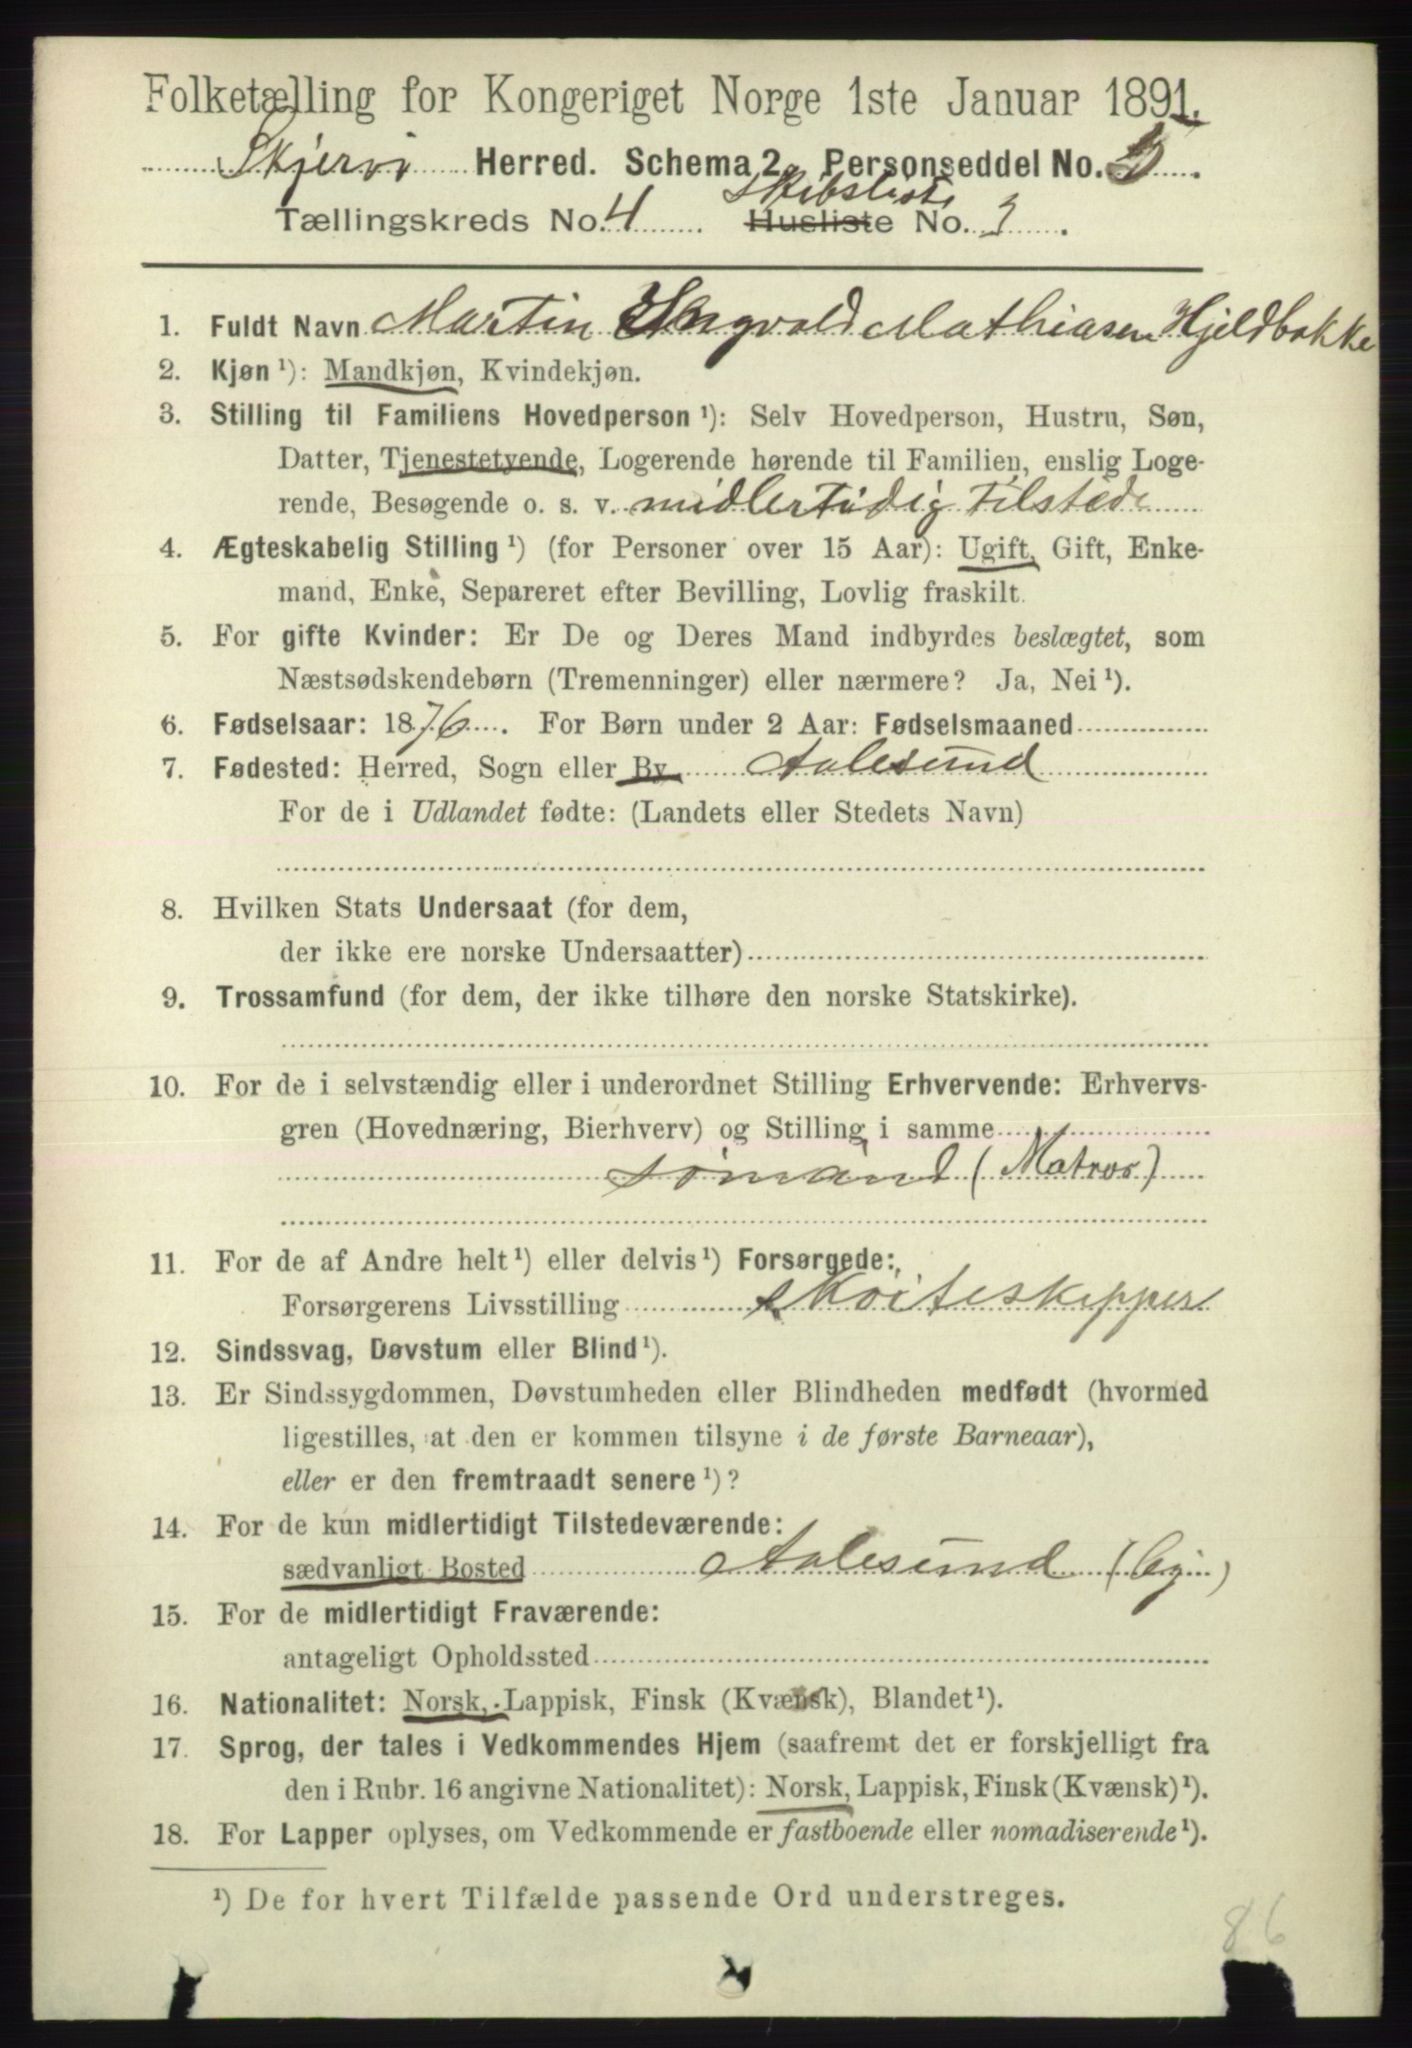 Folketælling for Kongeriget Norge 1ste Januar 1891.
Skjervø Herred. Schema 2. Personseddel No. 5.
Skibsliste
Tællingskreds No. 4 Husliste No. 3.
1. Fuldt Navn Martin Ingvald Mathiasen Hjeldbakke
2. Kjøn ¹): Mandkjøn, Kvindekjøn.
3. Stilling til Familiens Hovedperson ¹): Selv Hovedperson, Hustru, Søn,
Datter, Tjenestetyende, Logerende hørende til Familien, enslig Loge-
rende, Besøgende o. s. v. midlertidig tilstede
4. Ægteskabelig Stilling ¹) (for Personer over 15 Aar): Ugift, Gift, Enke-
mand, Enke, Separeret efter Bevilling, Lovlig fraskilt.
5. For gifte Kvinder: Er De og Deres Mand indbyrdes beslægtet, som
Næstsødskendebørn (Tremenninger) eller nærmere? Ja, Nei ¹).
6. Fødselsaar: 1876. For Børn under 2 Aar: Fødselsmaaned
7. Fødested: Herred, Sogn eller By Aalesund
For de i Udlandet fødte: (Landets eller Stedets Navn)
8. Hvilken Stats Undersaat (for dem,
der ikke ere norske Undersaatter)
9. Trossamfund (for dem, der ikke tilhøre den norske Statskirke).
10. For de i selvstændig eller i underordnet Stilling Erhvervende: Erhvervs-
gren (Hovednæring, Bierhverv) og Stilling i samme
sømand (Matros)
11. For de af Andre helt ¹) eller delvis ¹) Forsørgede:
Forsørgerens Livsstilling skøiteskipper
12. Sindssvag, Døvstum eller Blind ¹).
13. Er Sindssygdommen, Døvstumheden eller Blindheden medfødt (hvormed
ligestilles, at den er kommen tilsyne i de første Barneaar),
eller er den fremtraadt senere ¹)?
14. For de kun midlertidigt Tilstedeværende:
sædvanligt Bosted Aalesund (by)
15. For de midlertidigt Fraværende:
antageligt Opholdssted
16. Nationalitet: Norsk, Lappisk, Finsk (Kvænsk), Blandet ¹).
17. Sprog, der tales i Vedkommendes Hjem (saafremt det er forskjelligt fra
den i Rubr. 16 angivne Nationalitet): Norsk, Lappisk, Finsk (Kvænsk) ¹).
18. For Lapper oplyses, om Vedkommende er fastboende eller nomadiserende ¹).
¹) De for hvert Tilfælde passende Ord understreges.
86